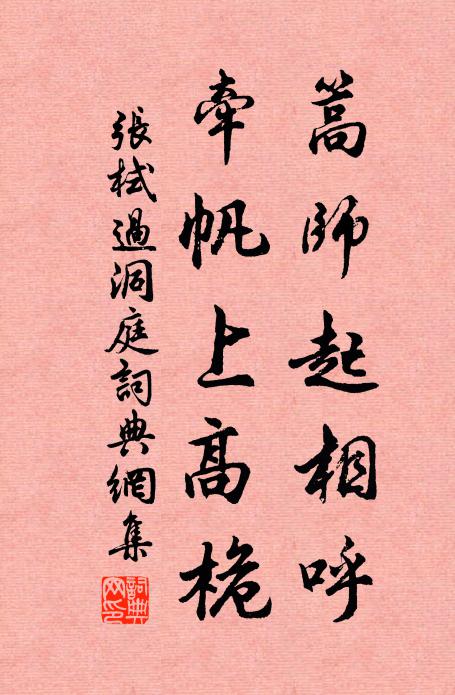 蒿師起相呼
牽帆上高桅
張栻過洞庭詞典網集
詞典網印